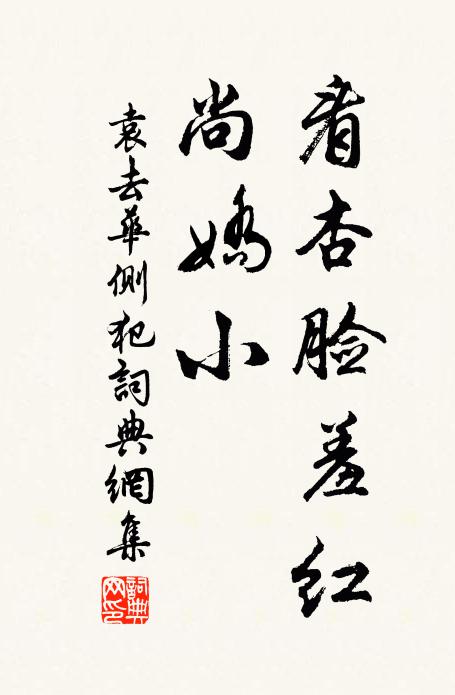 看杏脸羞红
尚嬌小
袁去華側犯詞典網集
詞典
网印